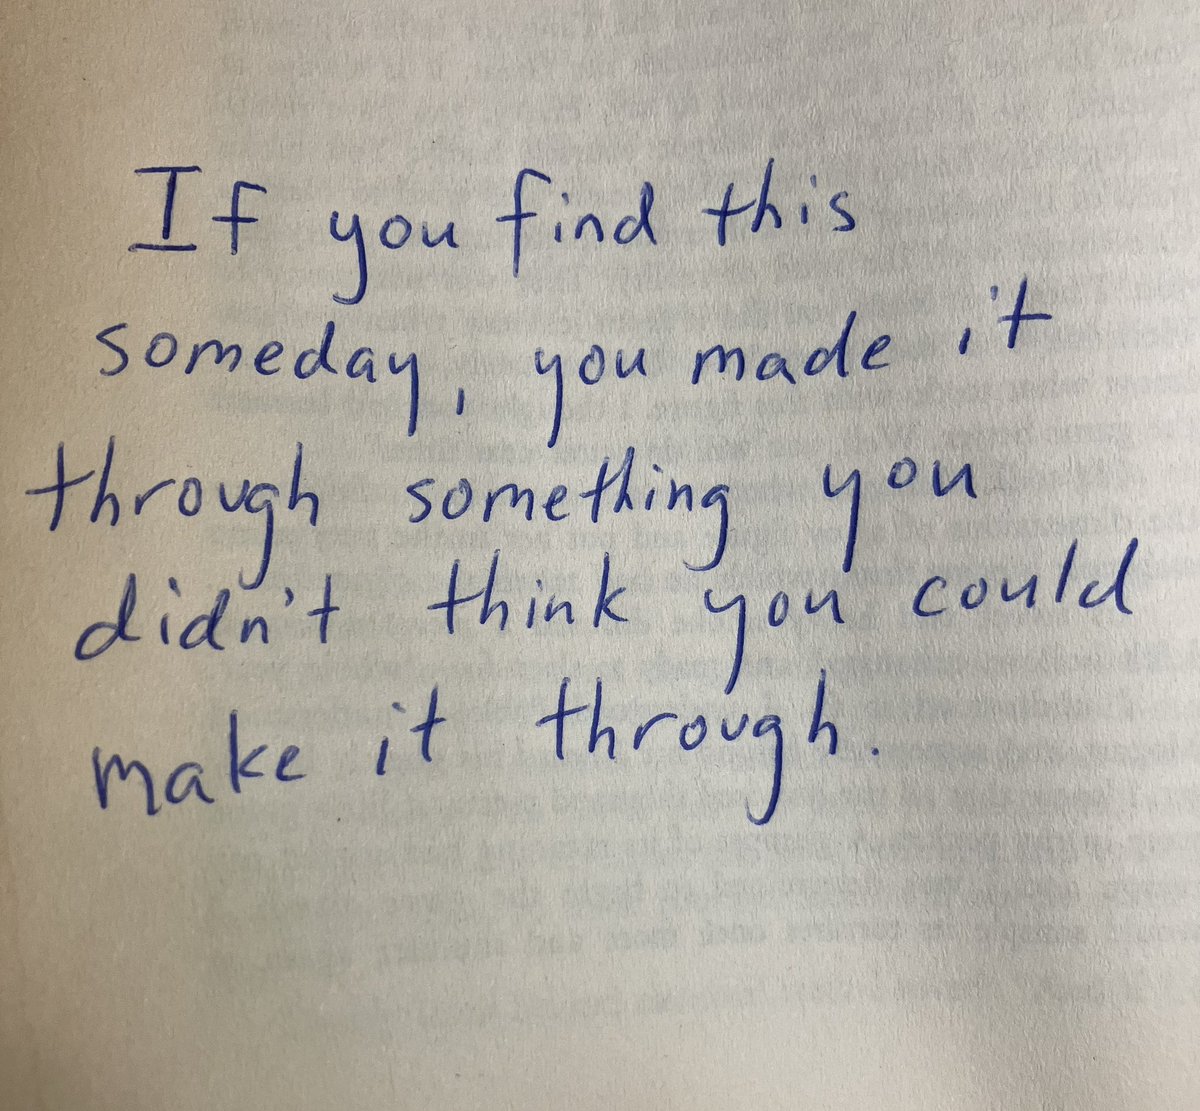 If you find this
someday, you made it
through something you
didn't think you could
make it through.